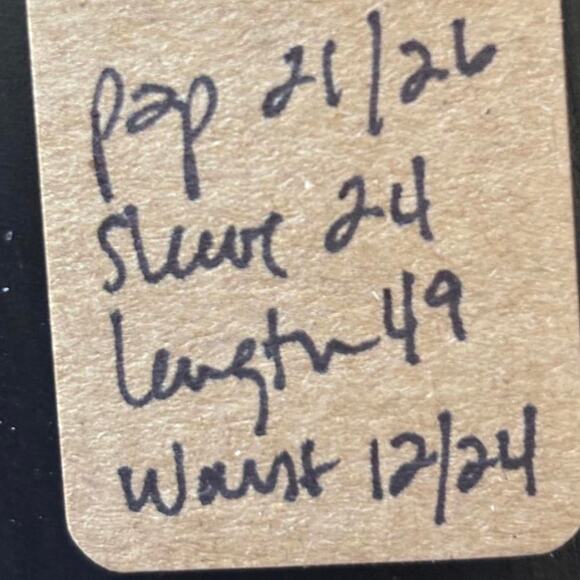 p2p 21/26
sleeve 24
length 49
waist 12/24